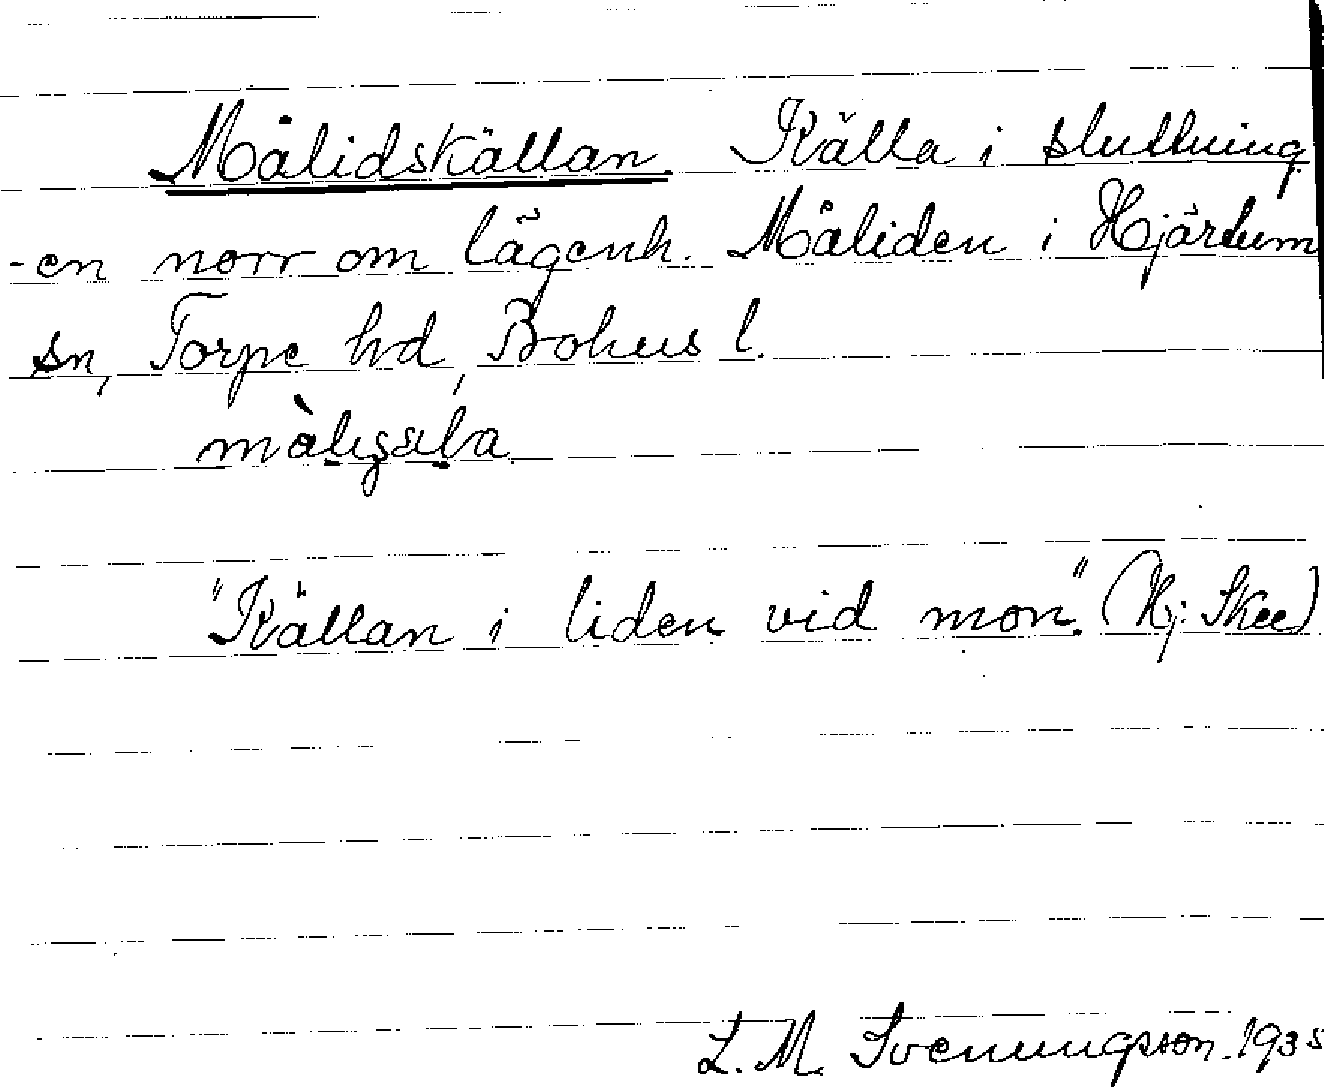 Målidskällan. Källa i sluttning
-en norr om lägenh. Måliden i Hjärtum
sn, Torpe hd, Bohus l.
"Källan i liden vid mon". (Hj. Skee)
L. M. Svenungsson. 1935